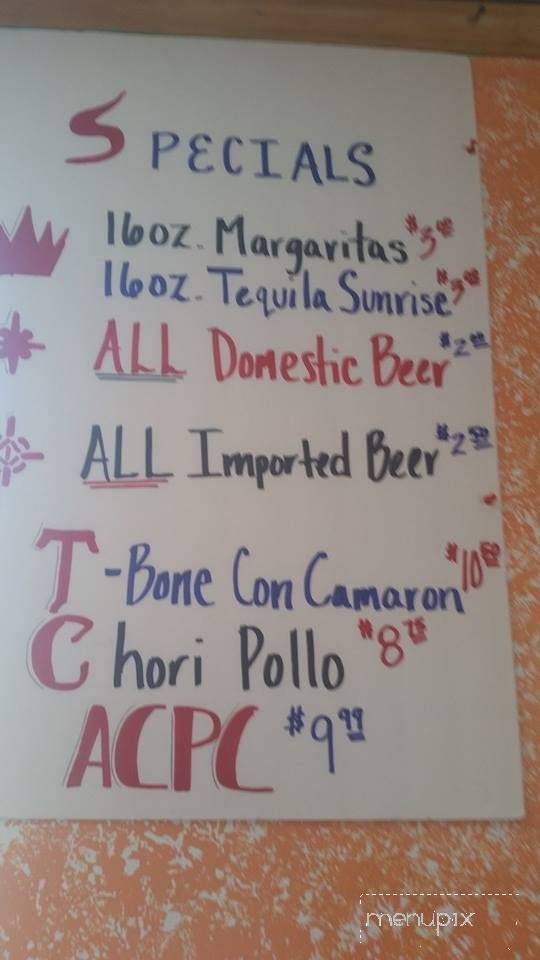 SPECIALS
16oz. Margaritas $3
16oz. Tequila Sunrise $3
ALL Domestic Beer $2
ALL Imported Beer $2 50
T-Bone Con Camaron $10 50
Chori Pollo $8 75
ACPC $9 99
menupix